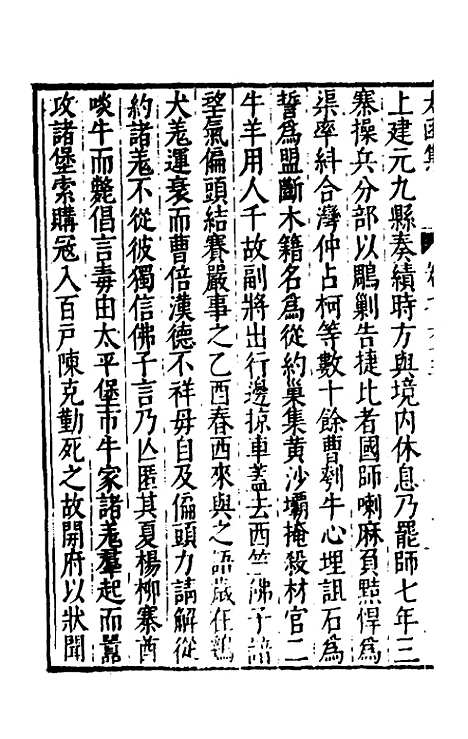 上建元九縣奏績時方與境内休息乃罷師七年三
寨操兵分部以鵰剿告捷比者國師喇麻負黠悍為
渠率糾合灣仲占柯等數十餘曹刳牛心埋詛石為
誓為盟斷木籍名為從約巢集黃沙壩掩殺材官二
牛羊用人千故副將出行邊掠車蓋去西竺佛子諳
望氣偏頭結賽嚴事之乙酉春西來與之語歲在鶉
犬羌運衰而曹倍漢德不祥毋自及偏頭力請解從
約諸羌不從彼獨信佛子言乃亾匿其夏楊柳寨酋
啖牛而斃倡言毒由太平堡市牛家諸羌羣起而嚚
攻諸堡索購寇入百戸陳克勤死之故開府以狀聞